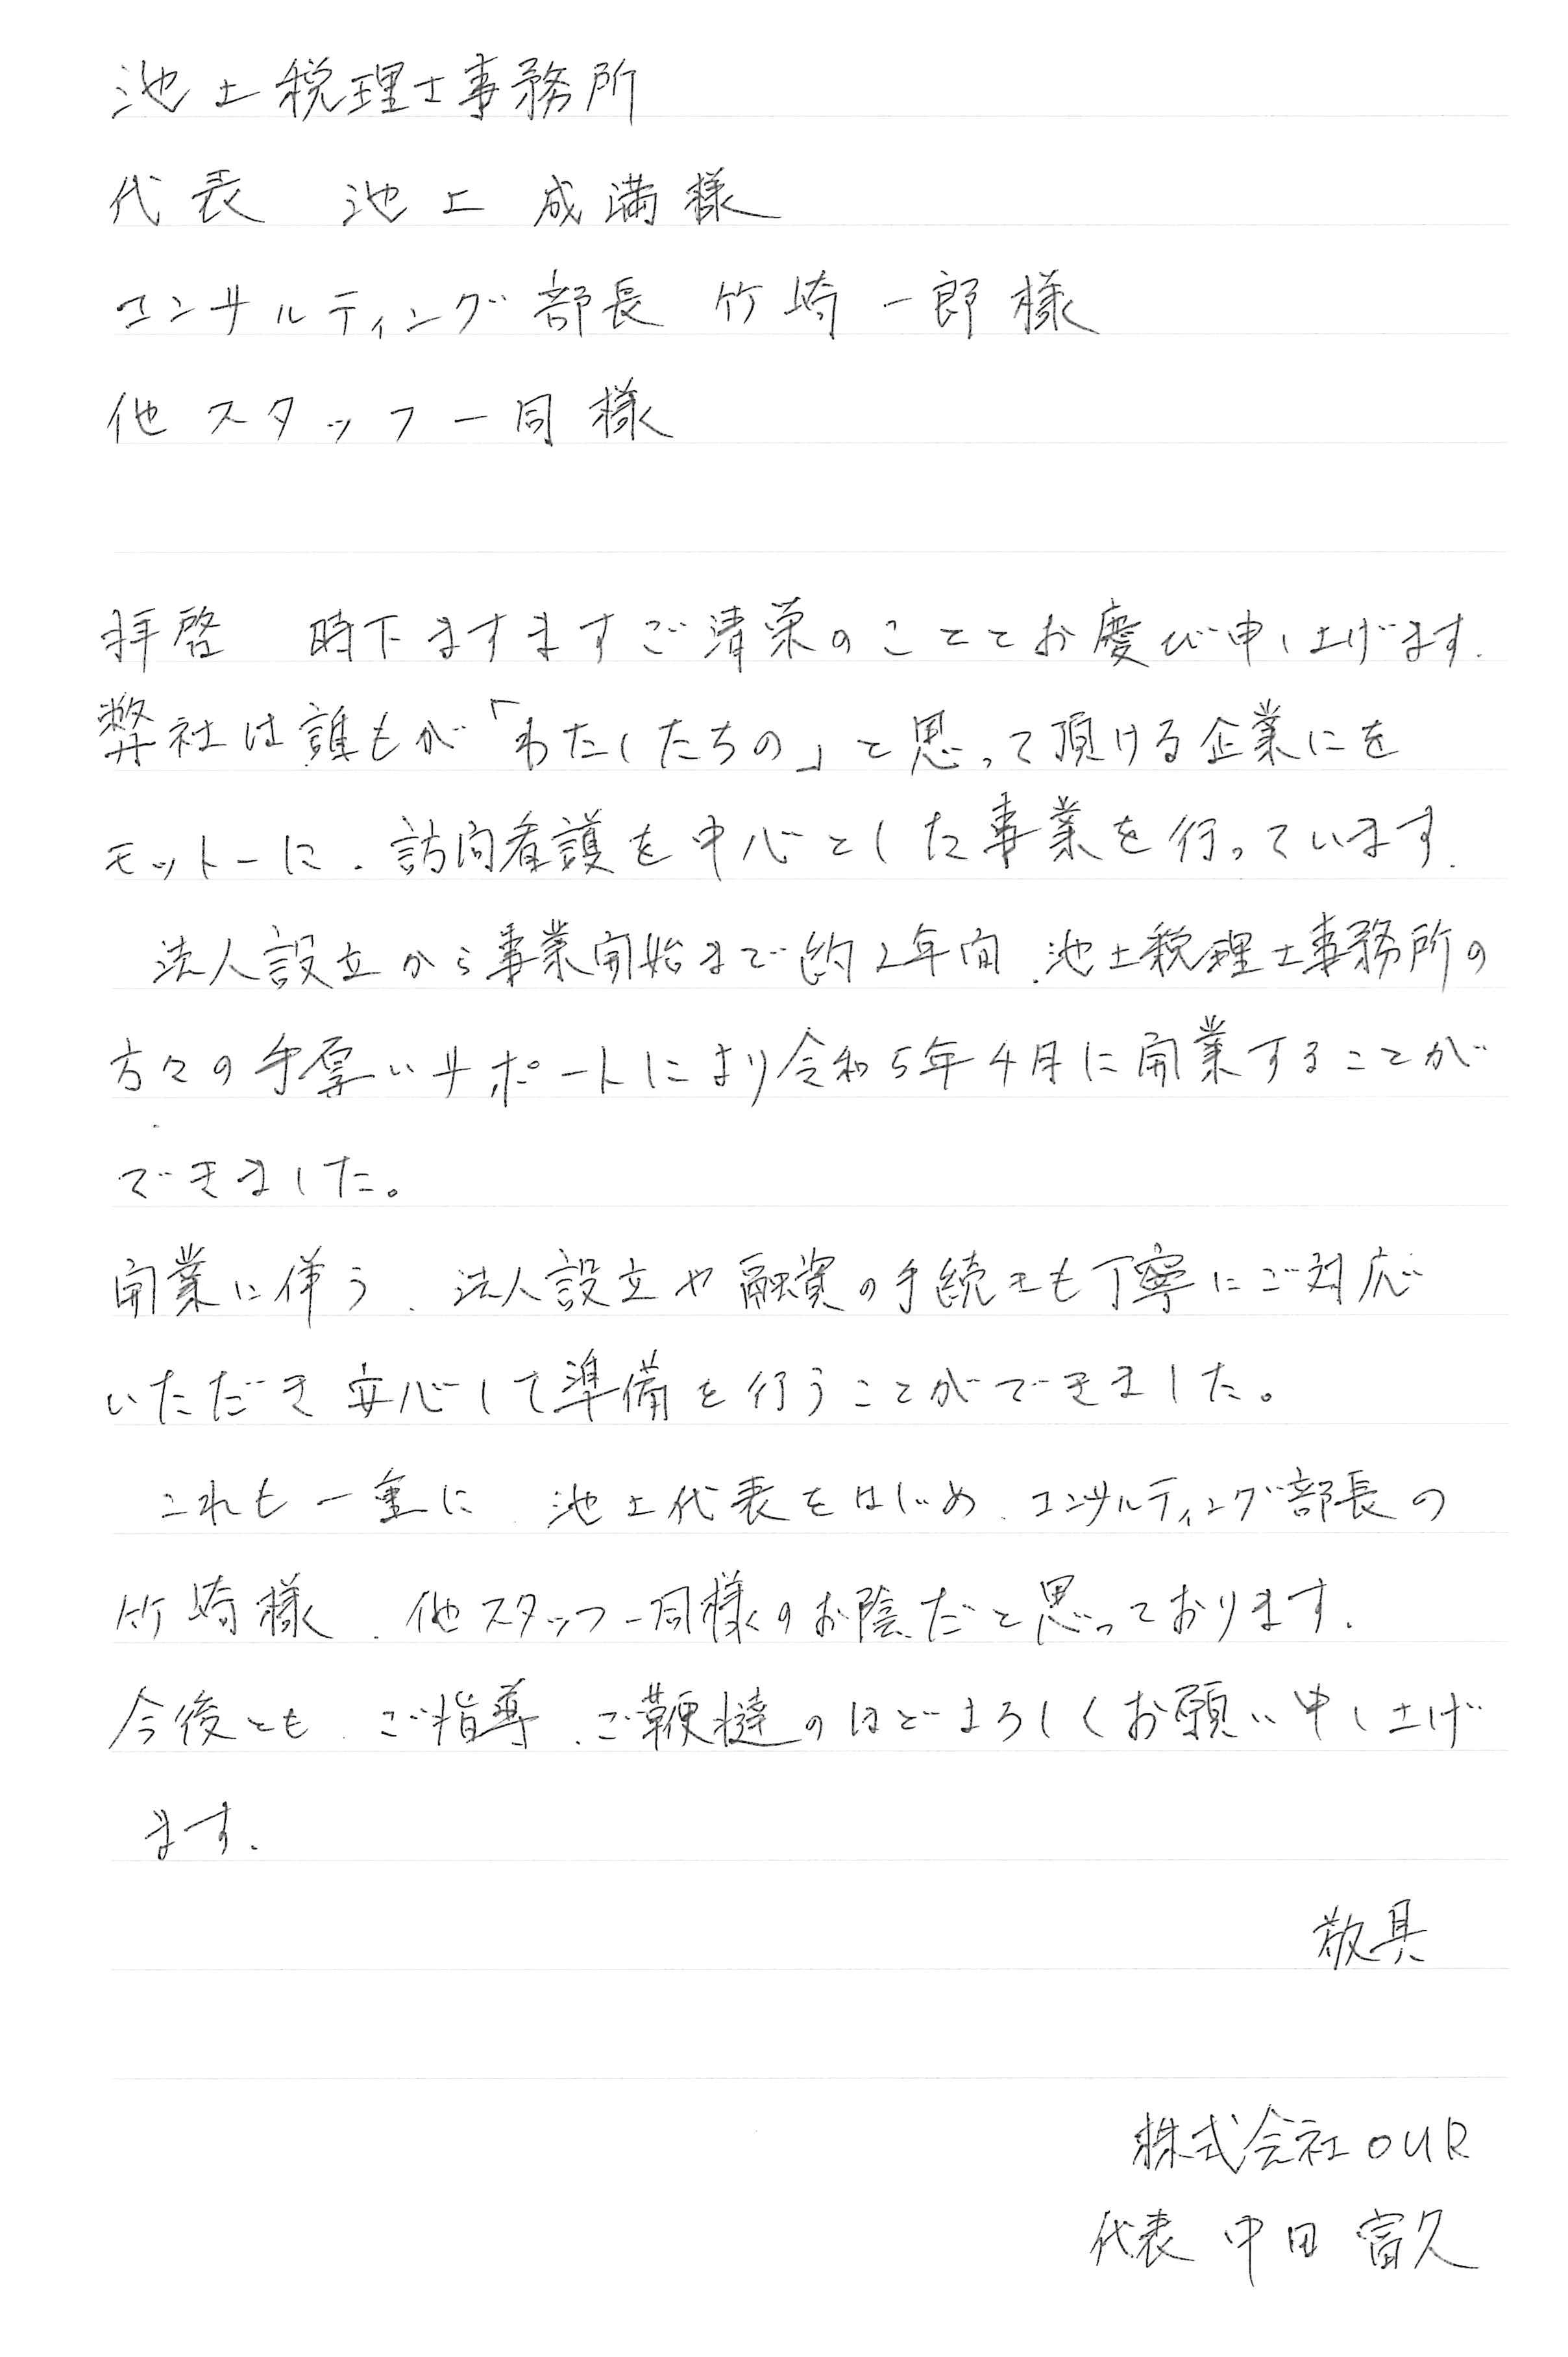 池上税理士事務所
代表　池上　成満様
コンサルティング部長　竹崎　一郎様
他スタッフ一同様
拝啓　時下ますますご清栄のこととお慶び申し上げます。
弊社は誰もが「わたくしたちの」と思って頂ける企業にを
モットーに、訪問看護を中心とした事業を行っています。
法人設立から事業開始まで約2年間、池上税理士事務所の
方々の手厚いサポートにより令和5年4月に開業することが
できました。
開業に伴う、法人設立や融資の手続きも丁寧にご対応
いただき安心して準備を行うことができました。
これも一重に、池上代表をはじめ、コンサルティング部長の
竹崎様、他スタッフ一同様のお陰だと思っております。
今後とも、ご指導、ご鞭撻のほどよろしくお願い申し上げ
ます。
敬具
株式会社OUR
代表　中田　富久